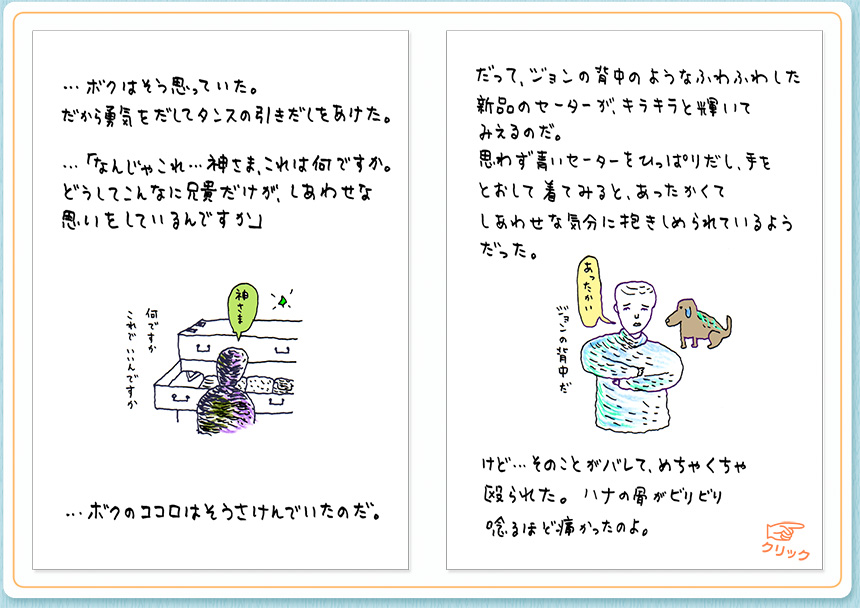 …ボクはそう思っていた。
だから勇気をだしてタンスの引きだしをあけた。
…「なんじゃこれ…神さま、これは何ですか。
どうしてこんなに兄貴だけが、しあわせな
思いをしているんですか」
神さま
何ですか
これでいいんですか
…ボクのココロはそうさけんでいたのだ。
だって、ジョンの背中のようなふわふわした
新品のセーターが、キラキラと輝いて
みえるのだ。
思わず青いセーターをひっぱりだし、手を
とおして着てみると、あったかくて
しあわせな気分に抱きしめられているよう
だった。
あったかい
ジョンの背中だ
けど…そのことがバレて、めちゃくちゃ
殴られた。ハナの骨がビリビリ
唸るほど痛かったのよ。
クリック